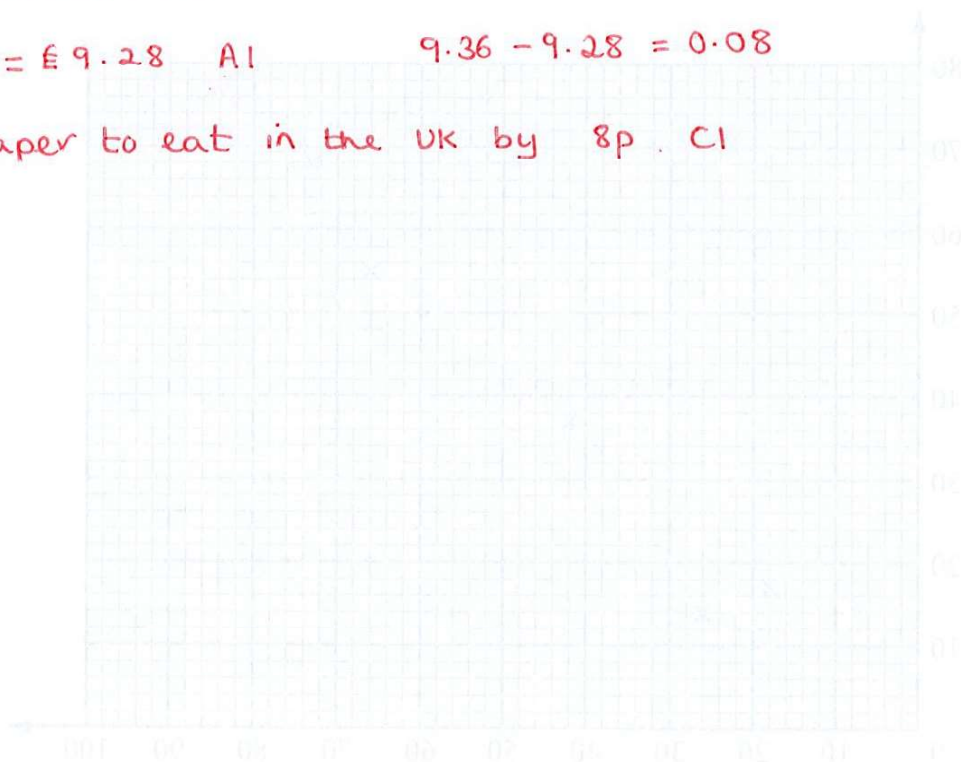 = £9.28 A1 9.36 - 9.28 = 0.08
to eat in the UK by 8p. C1